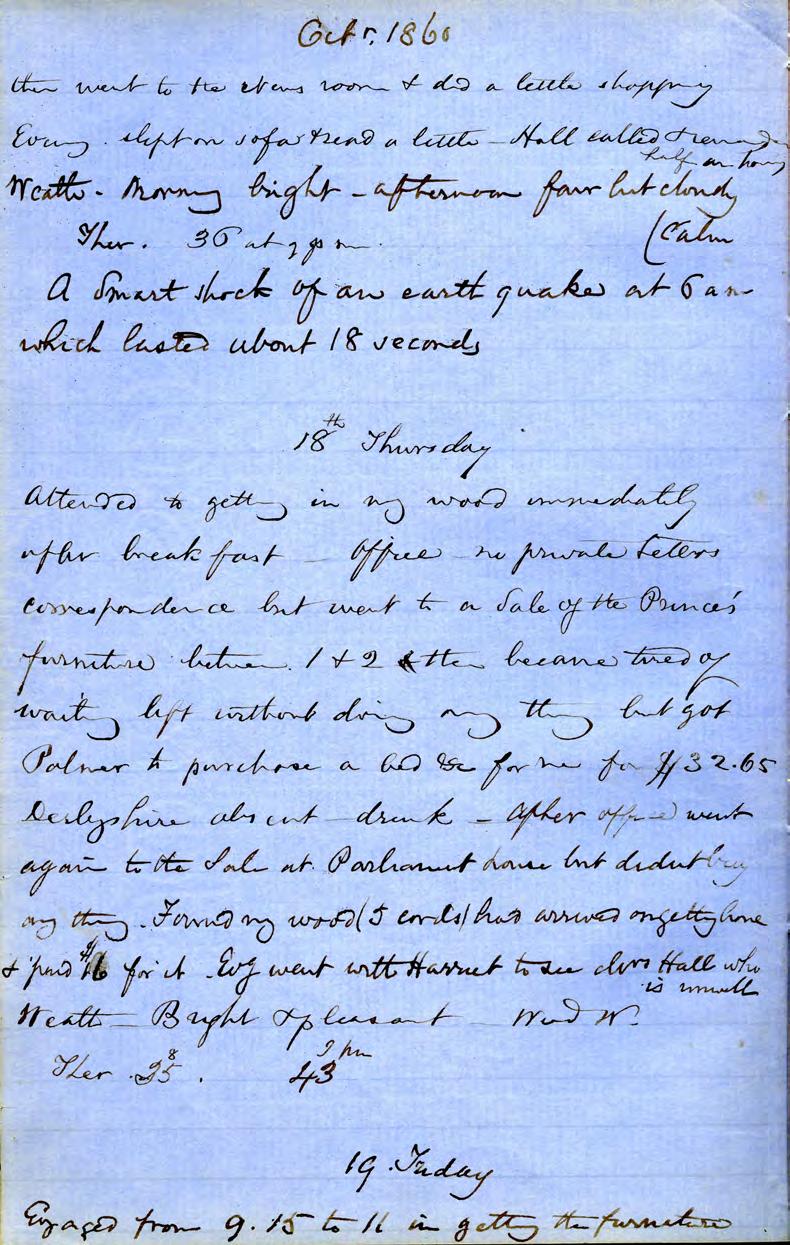 Octr. 1860
then went to the news room & did a little shopping
Evang. slept on sofa & read a little - Hall called & remained
half an hour
Weath - Morning bright - afternoon fair but cloudy
Ther. 36 at 9 pm. (Calm
A Smart shock of an earth quake at 6 am
which lasted about 18 seconds
18th Thursday
Attended to getting in my wood immediately
after breakfast - Office - no private letters
correspondence but went to a Sale of the Prince's
furniture between 1 & 2 & then became tired of
waiting left without doing any thing but got
Palmer to purchase a bed &c for me for $32.65
Derbyshire absent - drunk - After office went
again to the Sale at Parliament house but didnt buy
any thing. Found my wood (5 cords) had arrived on getting home
& paid for it Evg went with Harriet to see Mrs Hall who
is unwell
Weath - Bright & pleasant - Wind W.
Ther. 25 8. 43 9 pm
19. Friday
Engaged from 9.15 to 11 in getting the furniture